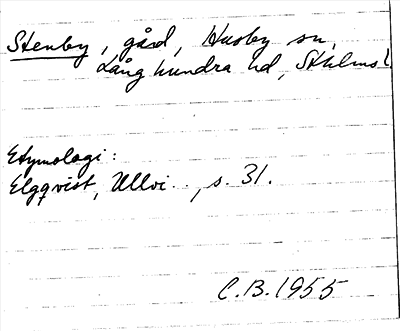 Stenby, gård, Husby sn,
Långhundra hd, Sthlms l
Etymologi:
Elgqvist, Ullvi.., s. 31.
C.B. 1955